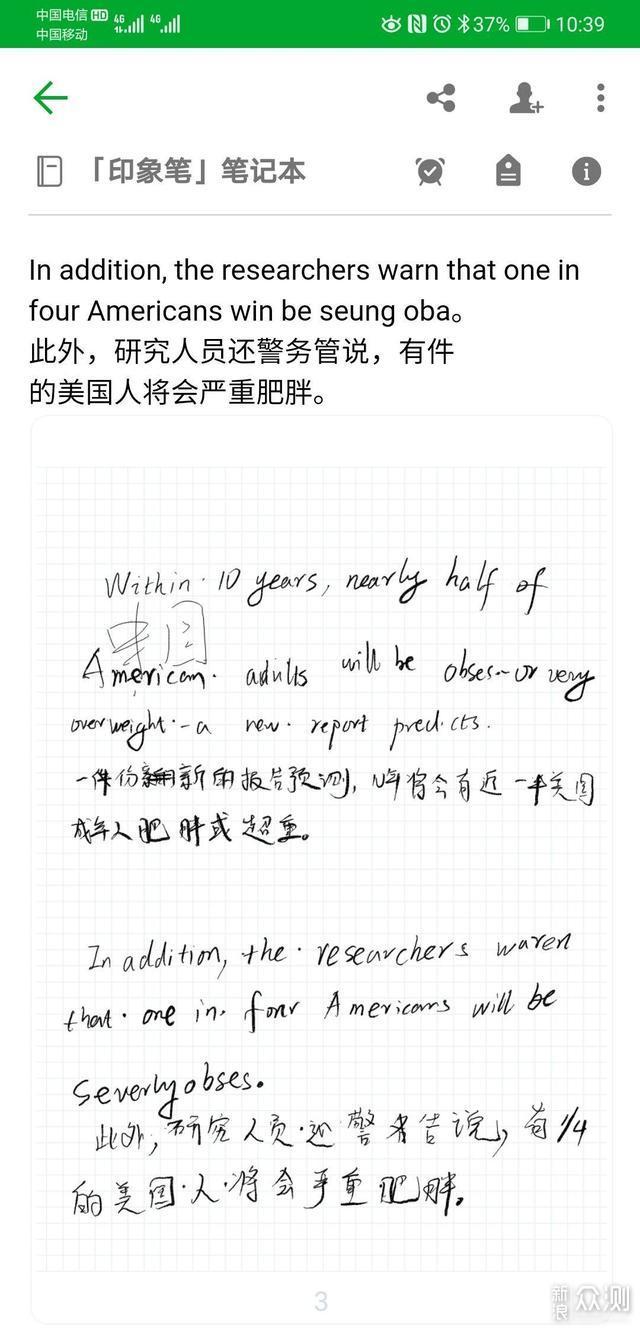 中国电信 HD 4G 4G 37% 10:39
中国移动
「印象笔」笔记本
In addition, the researchers warn that one in
four Americans win be seung oba。
此外，研究人员还警务管说，有件
的美国人将会严重肥胖。
Within 10 years, nearly half of
中国
American adults will be obses-or very
overweight-a new report predicts.
一件份新的报告预测，将会有近一半美国
成年人肥胖或超重。
In addition, the researchers waren
that one in four Americans will be
Severly obses.
此外，研究人员还警告说，有1/4
的美国人将会严重肥胖。
3
新浪众测